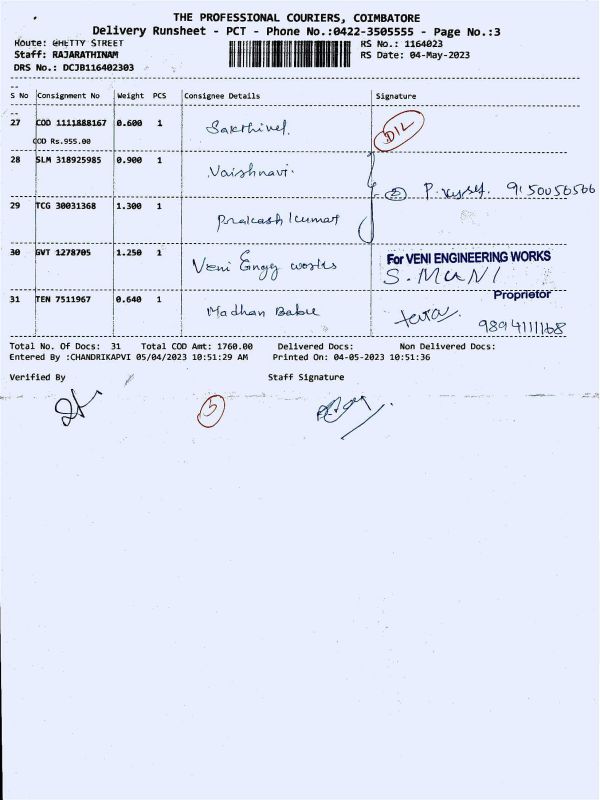 THE PROFESSIONAL COURIERS, COIMBATORE
Delivery Runsheet - PCT - Phone No.:0422-3505555 - Page No.:3
Route: GHETTY STREET RS No.: 1164023
Staff: RAJARATHINAM RS Date: 04-May-2023
DRS No.: DCJB116402303
S No Consignment No Weight PCS Consignee Details Signature
27 COD 1111888167 0.600 1 Sakthivel. DIL
COD Rs.955.00
28 SLM 318925985 0.900 1 Vaishnavi.
② 9150056566
29 TCG 30031368 1.300 1 Prakash kumar
30 GVT 1278705 1.250 1 Veni Engg works For VENI ENGINEERING WORKS
S. MUNI
Proprietor
31 TEN 7511967 0.640 1 Madhan Babu
9894111168
Total No. Of Docs: 31 Total COD Amt: 1760.00 Delivered Docs: Non Delivered Docs:
Entered By :CHANDRIKAPVI 05/04/2023 10:51:29 AM Printed On: 04-05-2023 10:51:36
Verified By Staff Signature
5